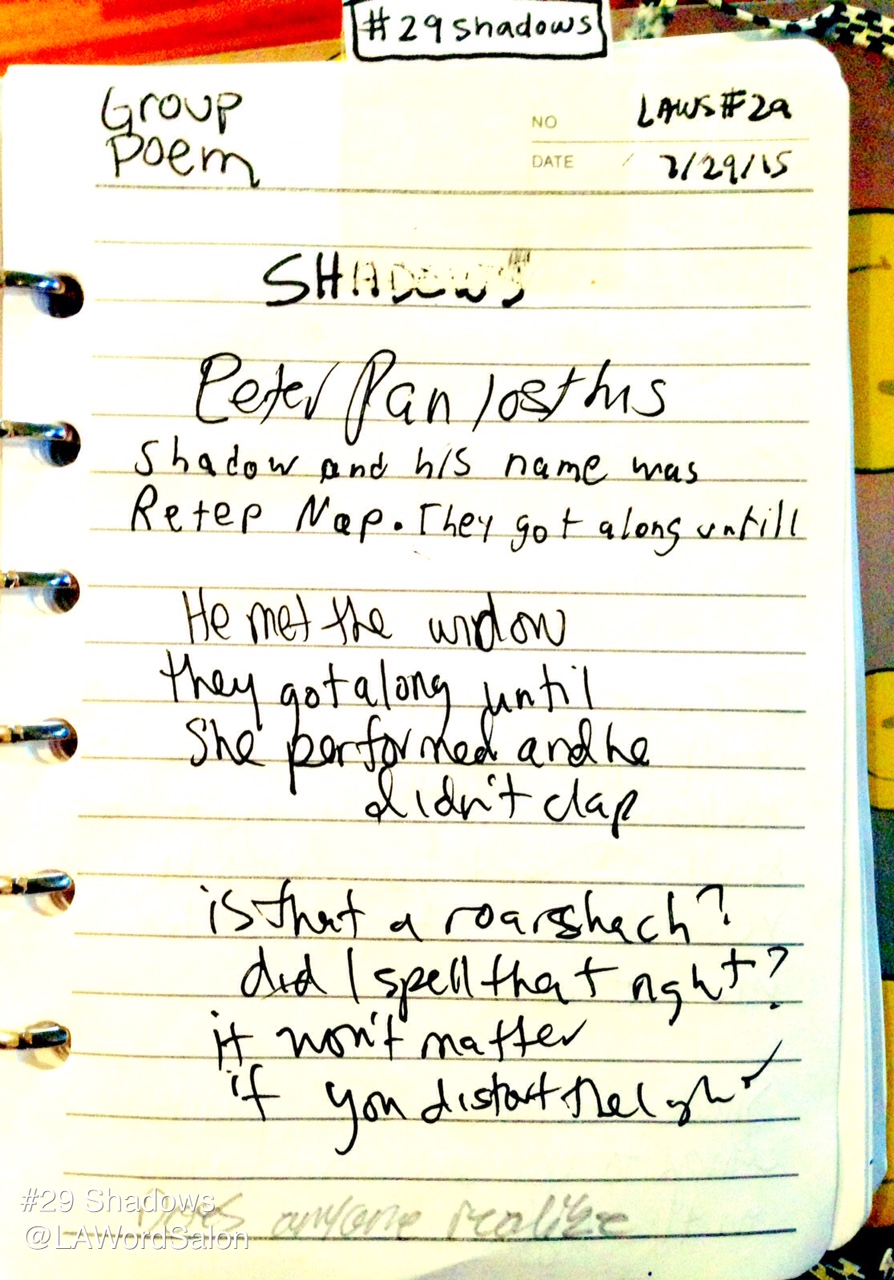 #29shadows
Group
Poem
NO LAWS#29
DATE / 7/29/15
SHADOWS
Peter Pan lost his
Shadow and his name was
Retep Nap. They got along untill
He met the widow
they got along until
She performed and he
didn't clap
is that a roarshach?
did I spell that right?
it won't matter
if you distort the light
Does anyone realize
#29 Shadows
@LAWordSalon